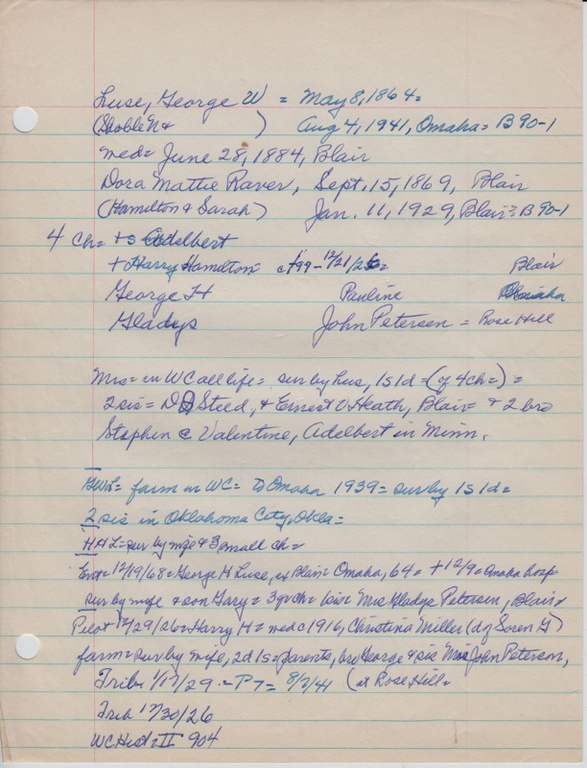 Luse, George W = May 8, 1864=
( ) Aug 4, 1941, Omaha= B 90-1
med= June 28, 1884, Blair
Dora Mattie Raver, Sept. 15, 1869, Blair
(Hamilton & Sarah) Jan. 11, 1929, Blair= B 90-1
4 ch= + s Adelbert
+ Harry Hamilton c1899-12/21/26= Blair
George H Pauline Omaha
Gladys John Petersen = Rose Hill
Mrs= in WC all life= sur by hus, 1s 1d=(of 4 ch=)=
2 sis= D Steed, & Ernest V Heath, Blair= & 2 bro
Stephen & Valentine, Adelbert in Minn.
GWL= farm in WC= to Omaha 1939= sur by 1s 1d=
2 sis in Oklahoma City, Okla=
HHL= sur by wife & 3 small ch=
Ent= 12/19/68= George H Luse, ex Blair= Omaha, 64= +12/9= Omaha hosp=
sur by wife & son Gary= 3 grch= 1 sis= Mrs Gladys Petersen, Blair=
Pilot 12/29/26= Harry H= med c1916, Christina Miller (d of Soren G)
farm= sur by wife, 2d 1s= parents, bro George & sis Mrs John Petersen,
Trib= 1/17/29 = P T= 8/7/41 (at Rose Hill=
Trib 12/30/26
WC Hist= II 904